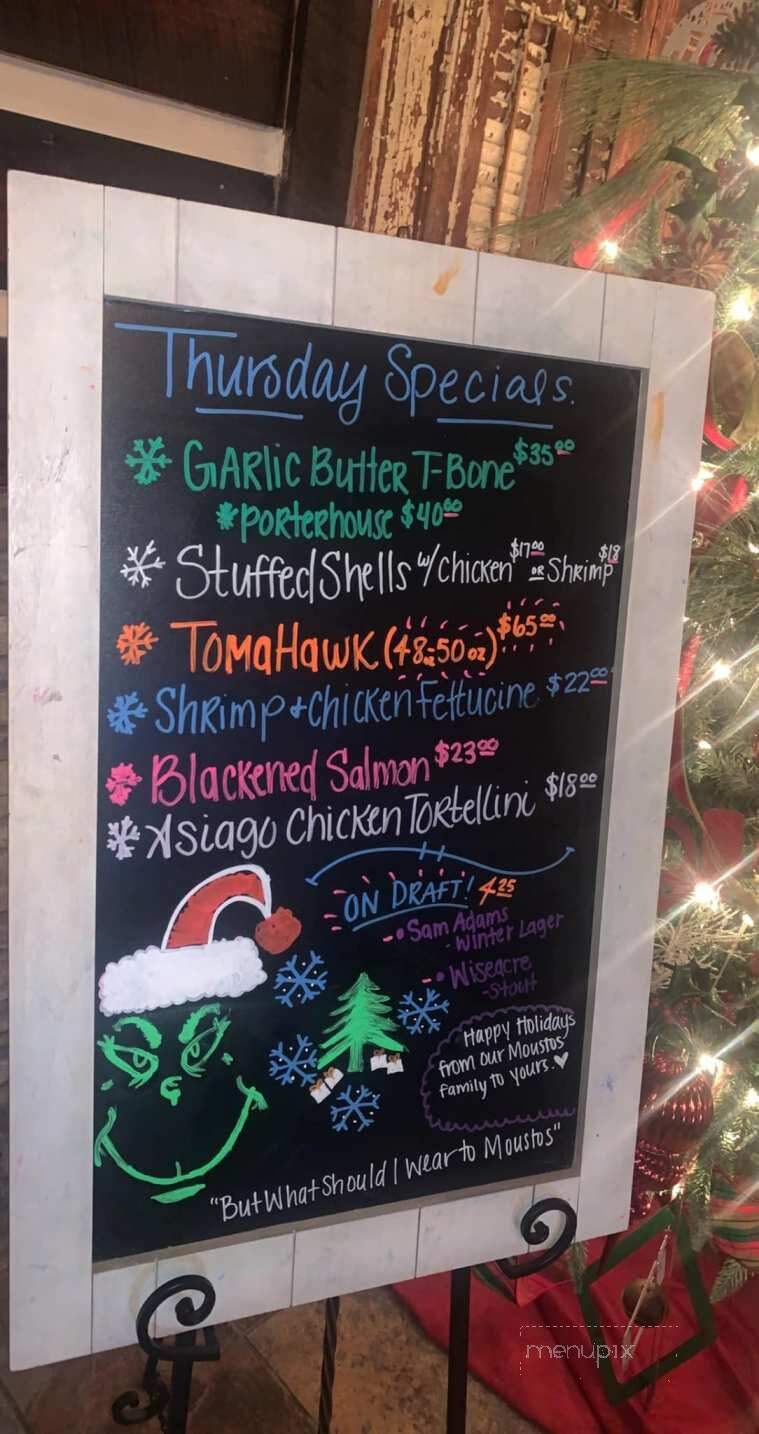 Thursday Specials.
Garlic Butter T-Bone $35.00
*Porterhouse $40.00
Stuffed Shells w/ Chicken $17.00 or Shrimp $18
Tomahawk (48oz-50oz) $65.00
Shrimp + Chicken Fettucine $22.00
Blackened Salmon $23.00
Asiago Chicken Tortellini $18.00
ON DRAFT! 4.25
• Sam Adams
- Winter Lager
• Wiseacre
- Stout
Happy Holidays
from our Moustos
family to yours. ♥
"But What Should I Wear to Moustos"
menupix